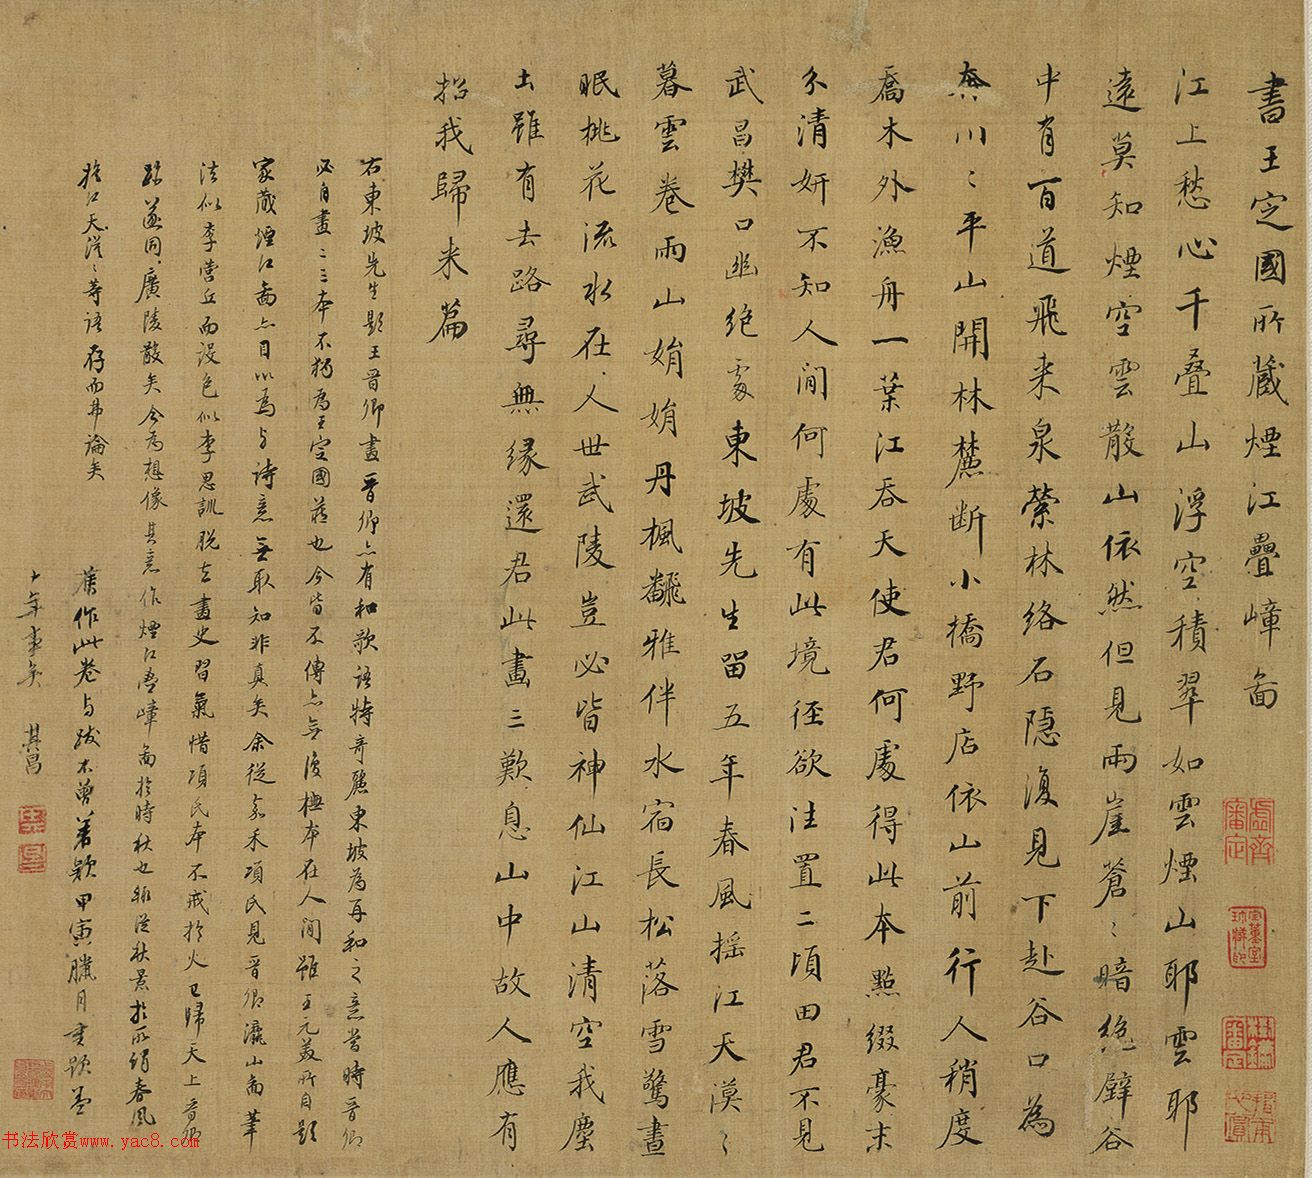 書王定國所藏煙江疊嶂啚
江上愁心千疊山浮空積翠如雲煙山耶雲耶
遠莫知煙空雲散山依然但見兩崖蒼〻暗絶壁谷
中有百道飛来泉縈林絡石隱復見下赴谷口為
奔川〻平山開林麓断小橋野店依山前行人稍度
喬木外漁舟一葉江吞天使君何處得此本點綴豪末
分清妍不知人間何處有此境徑欲往置二頃田君不見
武昌樊口幽絶處東坡先生留五年春風揺江天漠〻
暮雲卷雨山娟娟丹楓飜雅伴水宿長松落雪驚晝
眠桃花流水在人世武陵豈必皆神仙江山清空我塵
土雖有去路尋無縁還君此畫三歎息山中故人應有
招我歸来篇
右東坡先生題王晉卿畫晉卿亦有和歌語特奇麗東坡為再和之意當時晉卿
必自畫〻二三本不獨為王定國藏也今皆不傳亦無復橅本在人間雖王元美所自題
家藏煙江啚亦目以為與詩意無取知非真矣余從嘉禾項氏見晉卿瀛山啚筆
法似李營丘而設色似李思訓脱去畫史習氣惜項氏本不戒於火已歸天上晉卿
跡遂同廣陵散矣今為想像其意作煙江疊嶂啚於時秋也輒從秋景於所謂春風
揺江天漠〻等語存而弗論矣
舊作此卷與跋不曾署款甲寅臘月重題蓋
十年事矣 其昌
虛齋審定
书法欣赏www.yac8.com